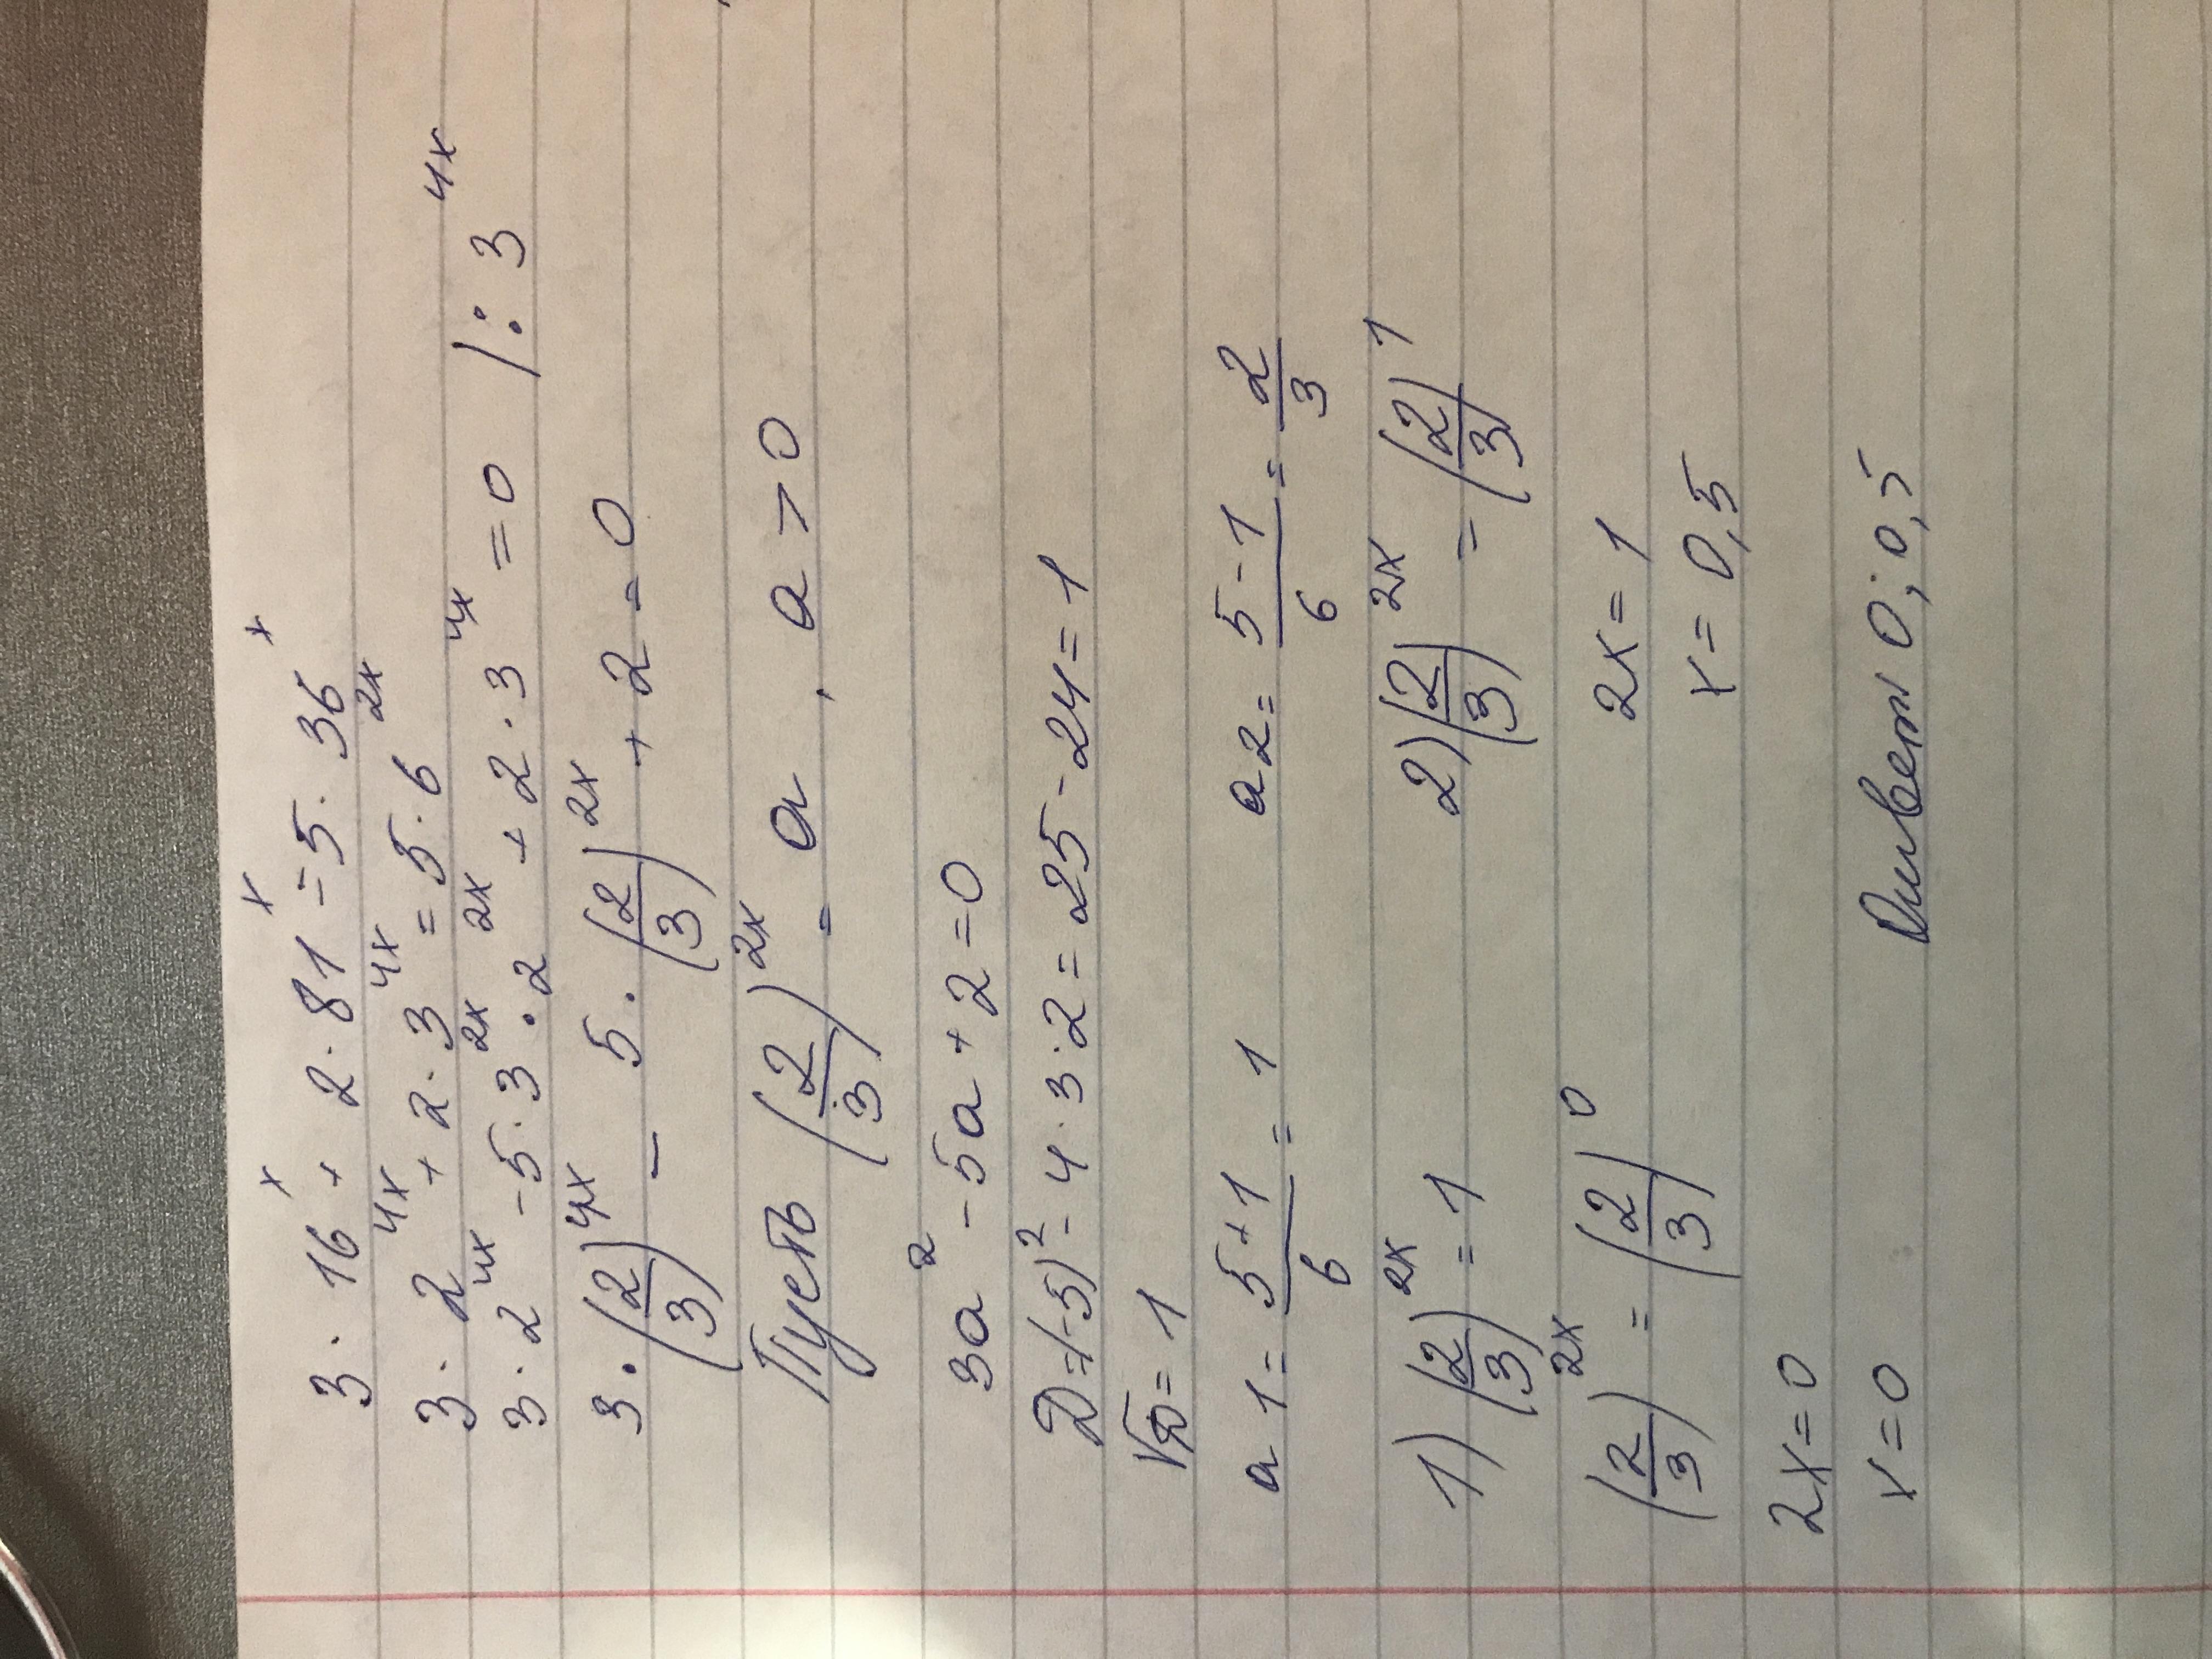 3 · 16^x + 2 · 81^x = 5 · 36^x
3 · 2^4x + 2 · 3^4x = 5 · 6^2x
3 · 2^4x - 5 · 3^2x · 2^2x + 2 · 3^4x = 0 /: 3^4x
3 · (2/3)^4x - 5 · (2/3)^2x + 2 = 0
Пусть (2/3)^2x = a, a > 0
3a² - 5a + 2 = 0
D = (-5)² - 4 · 3 · 2 = 25 - 24 = 1
√D = 1
a1 = (5+1)/6 = 1 a2 = (5-1)/6 = 2/3
1) (2/3)^2x = 1 2) (2/3)^2x = (2/3)^1
(2/3)^2x = (2/3)^0 2x = 1
2x = 0 x = 0,5
x = 0
Ответ 0; 0,5